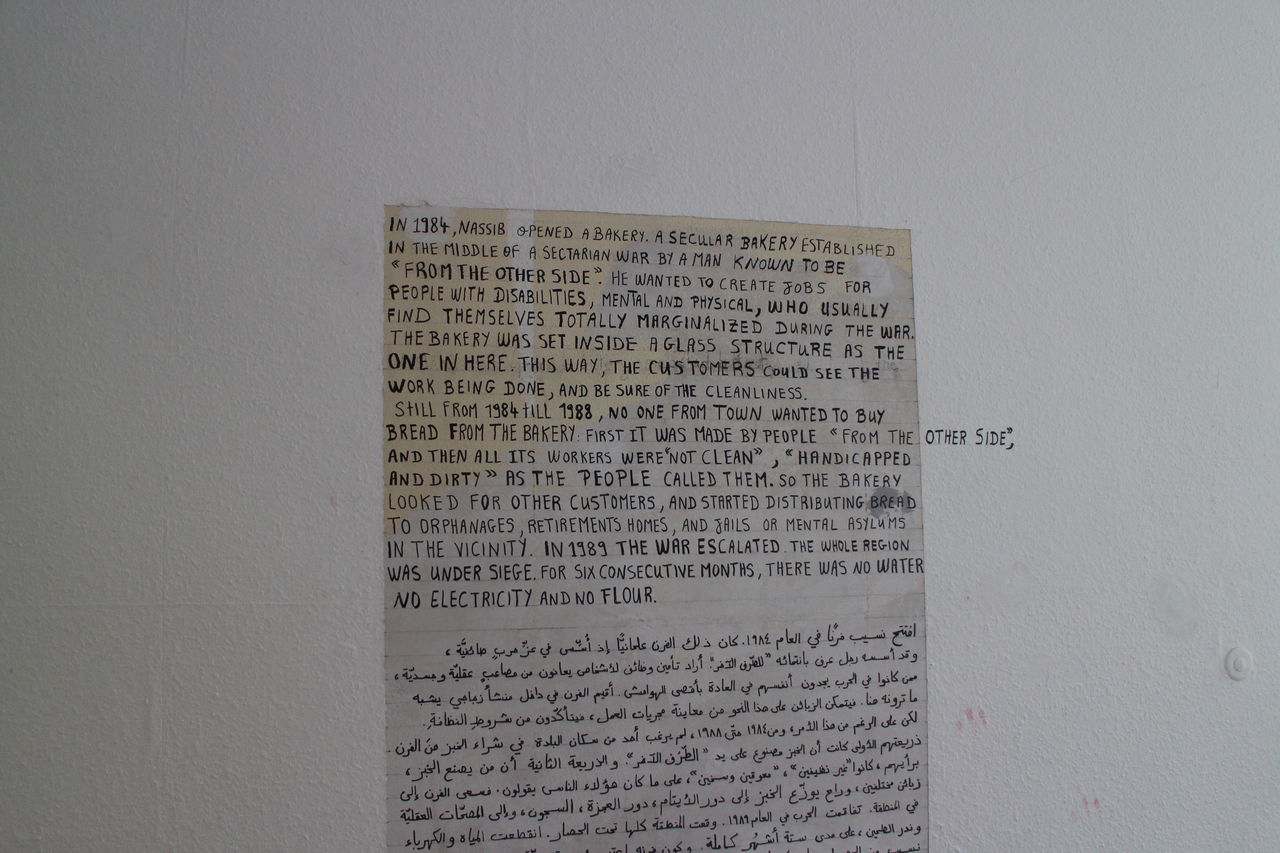 IN 1984, NASSIB OPENED A BAKERY. A SECULAR BAKERY ESTABLISHED
IN THE MIDDLE OF A SECTARIAN WAR BY A MAN KNOWN TO BE
“FROM THE OTHER SIDE”. HE WANTED TO CREATE JOBS FOR
PEOPLE WITH DISABILITIES, MENTAL AND PHYSICAL, WHO USUALLY
FIND THEMSELVES TOTALLY MARGINALIZED DURING THE WAR.
THE BAKERY WAS SET INSIDE A GLASS STRUCTURE AS THE
ONE IN HERE. THIS WAY, THE CUSTOMERS COULD SEE THE
WORK BEING DONE, AND BE SURE OF THE CLEANLINESS.
STILL FROM 1984 TILL 1988, NO ONE FROM TOWN WANTED TO BUY
BREAD FROM THE BAKERY: FIRST IT WAS MADE BY PEOPLE “FROM THE OTHER SIDE”,
AND THEN ALL ITS WORKERS WERE “NOT CLEAN”, “HANDICAPPED
AND DIRTY” AS THE PEOPLE CALLED THEM. SO THE BAKERY
LOOKED FOR OTHER CUSTOMERS, AND STARTED DISTRIBUTING BREAD
TO ORPHANAGES, RETIREMENTS HOMES, AND JAILS OR MENTAL ASYLUMS
IN THE VICINITY. IN 1989 THE WAR ESCALATED. THE WHOLE REGION
WAS UNDER SIEGE. FOR SIX CONSECUTIVE MONTHS, THERE WAS NO WATER
NO ELECTRICITY AND NO FLOUR.
افتتح نسيب فرنًا في العام ١٩٨٤. كان ذلك الفرن علمانيًّا إذ أُسّس في عزّ حربٍ طائفيَّة،
وقد أسسه رجل عرف بانتمائه "للطّرف الآخر". أراد تأمين وظائف لأشخاص يعانون من مصاعب عقليّة وجسديّة،
ممن كانوا في الحرب يجدون أنفسهم في العادة بأقصى الهوامش. أقيم الفرن في داخل منشأ زجاجي يشبه
ما ترونه هنا. فيتمكن الزبائن على هذا النحو من معاينة مجريات العمل، فيتأكّدون من شروط النظافة.
لكن على الرغم من هذا الأمر، ومن ١٩٨٤ حتّى ١٩٨٨، لم يرغب أحد من سكان البلدة في شراء الخبز من الفرن.
ذريعتهم الأولى كانت أن الخبز مصنوع على يد "الطّرف الآخر". والذريعة الثانية أن من يصنع الخبز،
برأيهم، كانوا "غير نظيفين"، "معوقين وسخين"، على ما كان هؤلاء الناس يقولون. فسعى الفرن إلى
زبائن مختلفين، وراح يوزّع الخبز إلى دور الأيتام، دور العجزة، السجون، وإلى المصحّات العقليّة
في المنطقة. تفاقمت الحرب في العام ١٩٨٩. وقعت المنطقة كلها تحت الحصار. انقطعت المياه والكهرباء
وندر الطحين، على مدى ستة أشهُر كاملة.